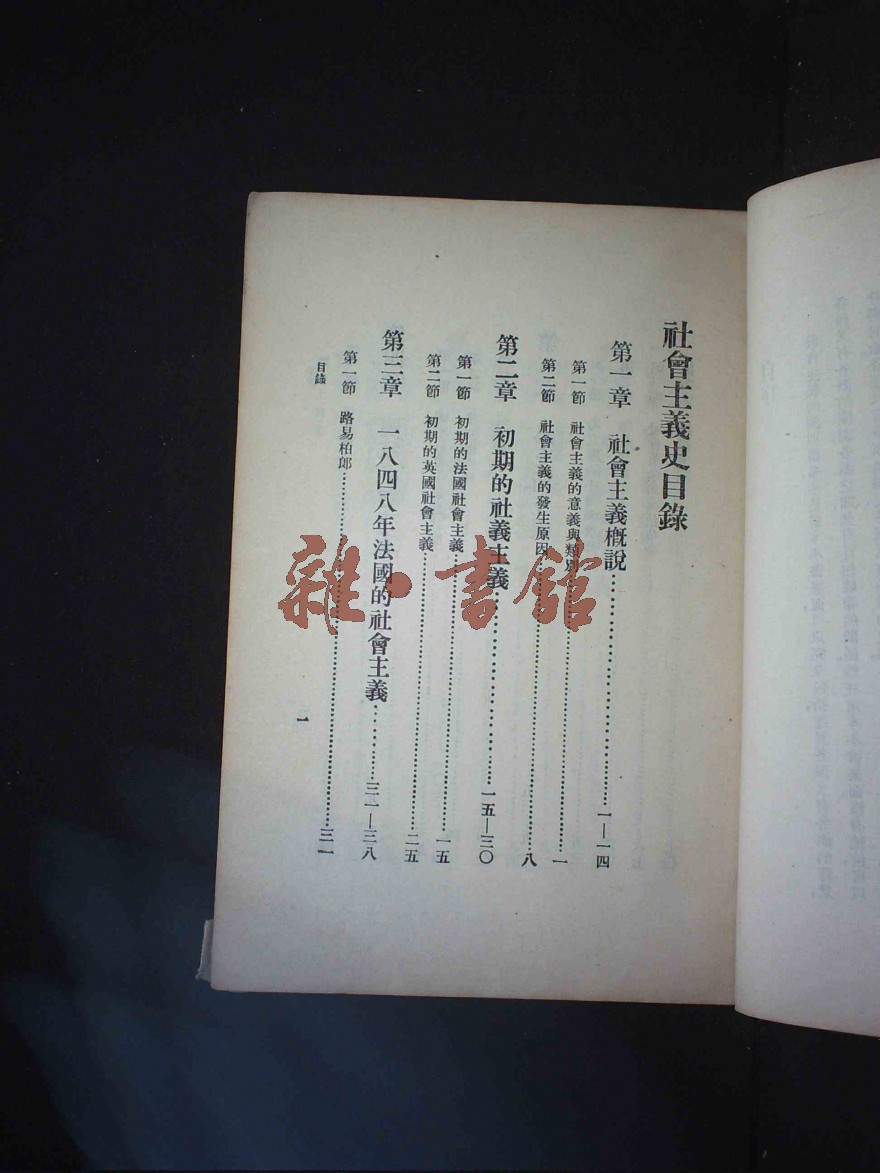 社會主義史目錄
第一章 社會主義概說……一—一四
第一節 社會主義的意義與類別……一
第二節 社會主義的發生原因……八
第二章 初期的社義主義……一五—三〇
第一節 初期的法國社會主義……一五
第二節 初期的英國社會主義……二五
第三章 一八四八年法國的社會主義……三一—三八
第一節 路易柏郎……三一
目錄
一
雜·書館